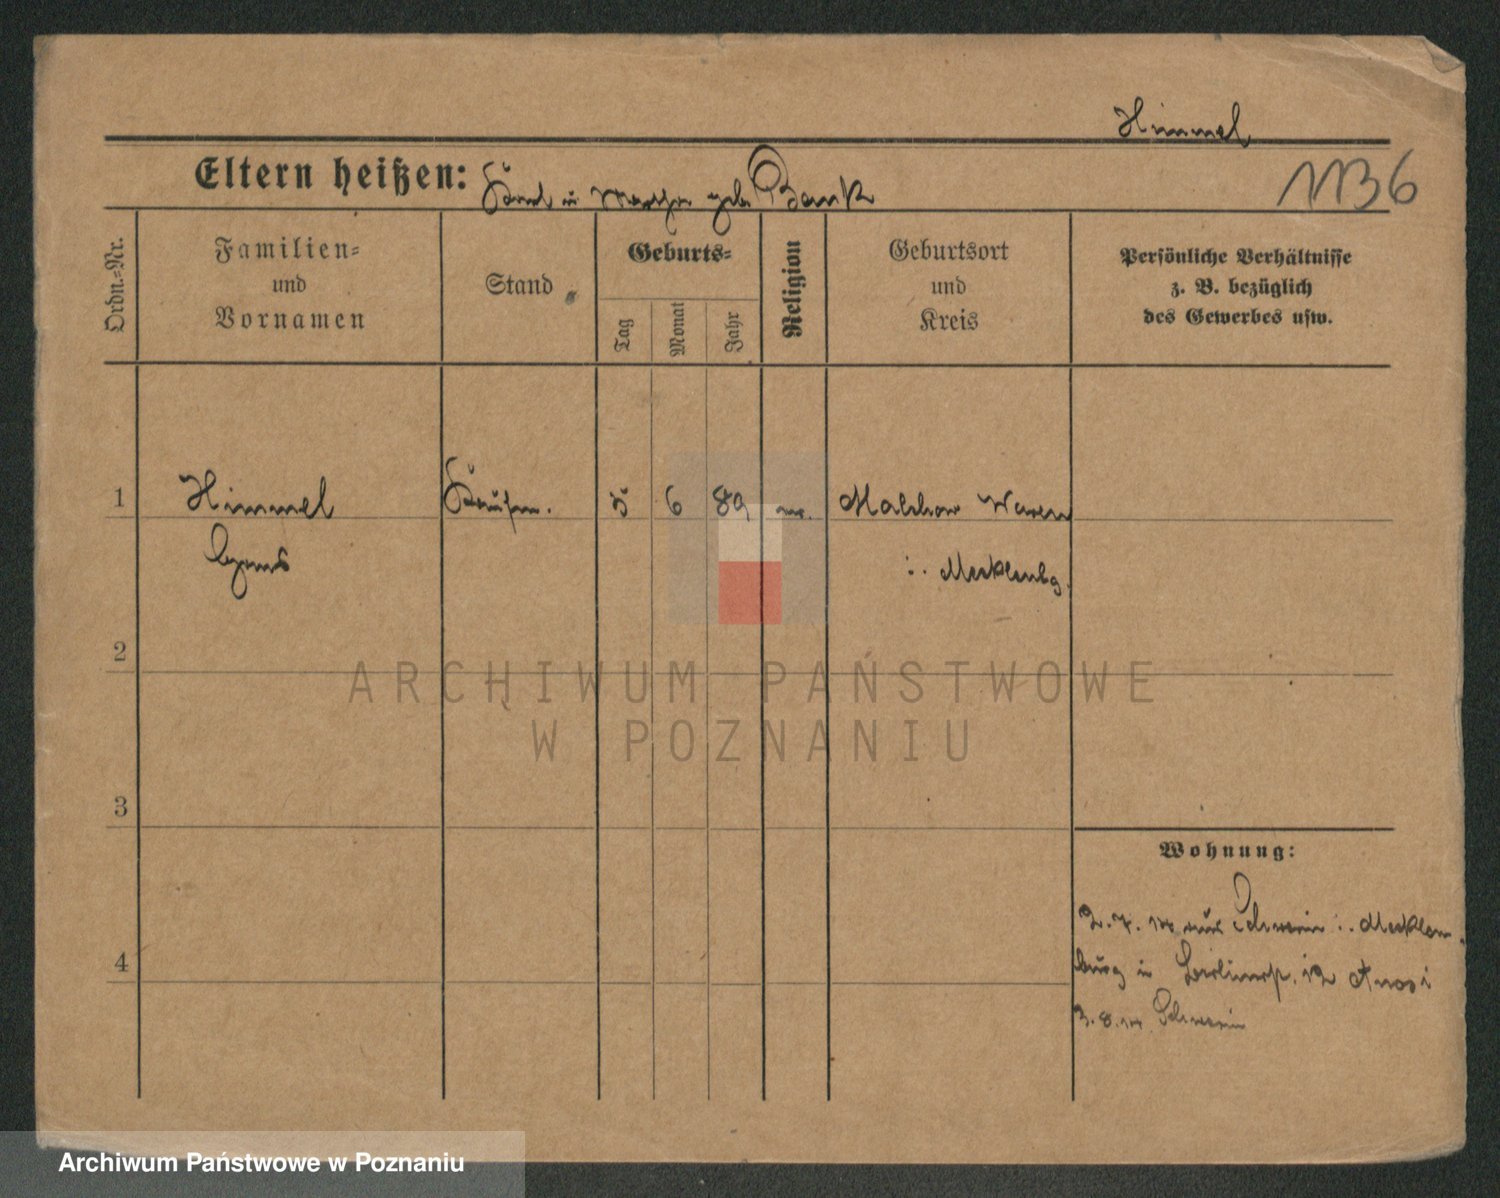 Himmel
1136
Eltern heißen: Karl u Martha geb. Bank
Ordn.-Nr.
Familien-
und
Vornamen
Stand
Geburts-
Tag
Monat
Jahr
Religion
Geburtsort
und
Kreis
Persönliche Verhältnisse
z. B. bezüglich
des Gewerbes usw.
1 Himmel Kaufm. 5 6 89 Malchow Waren
i. Mecklenbg.
2
3
4
Wohnung:
2.7. aus Schwerin i. Mecklen-
burg in Berlinerstr. 12
3.8. Schwerin
ARCHIWUM PAŃSTWOWE
W POZNANIU
Archiwum Państwowe w Poznaniu